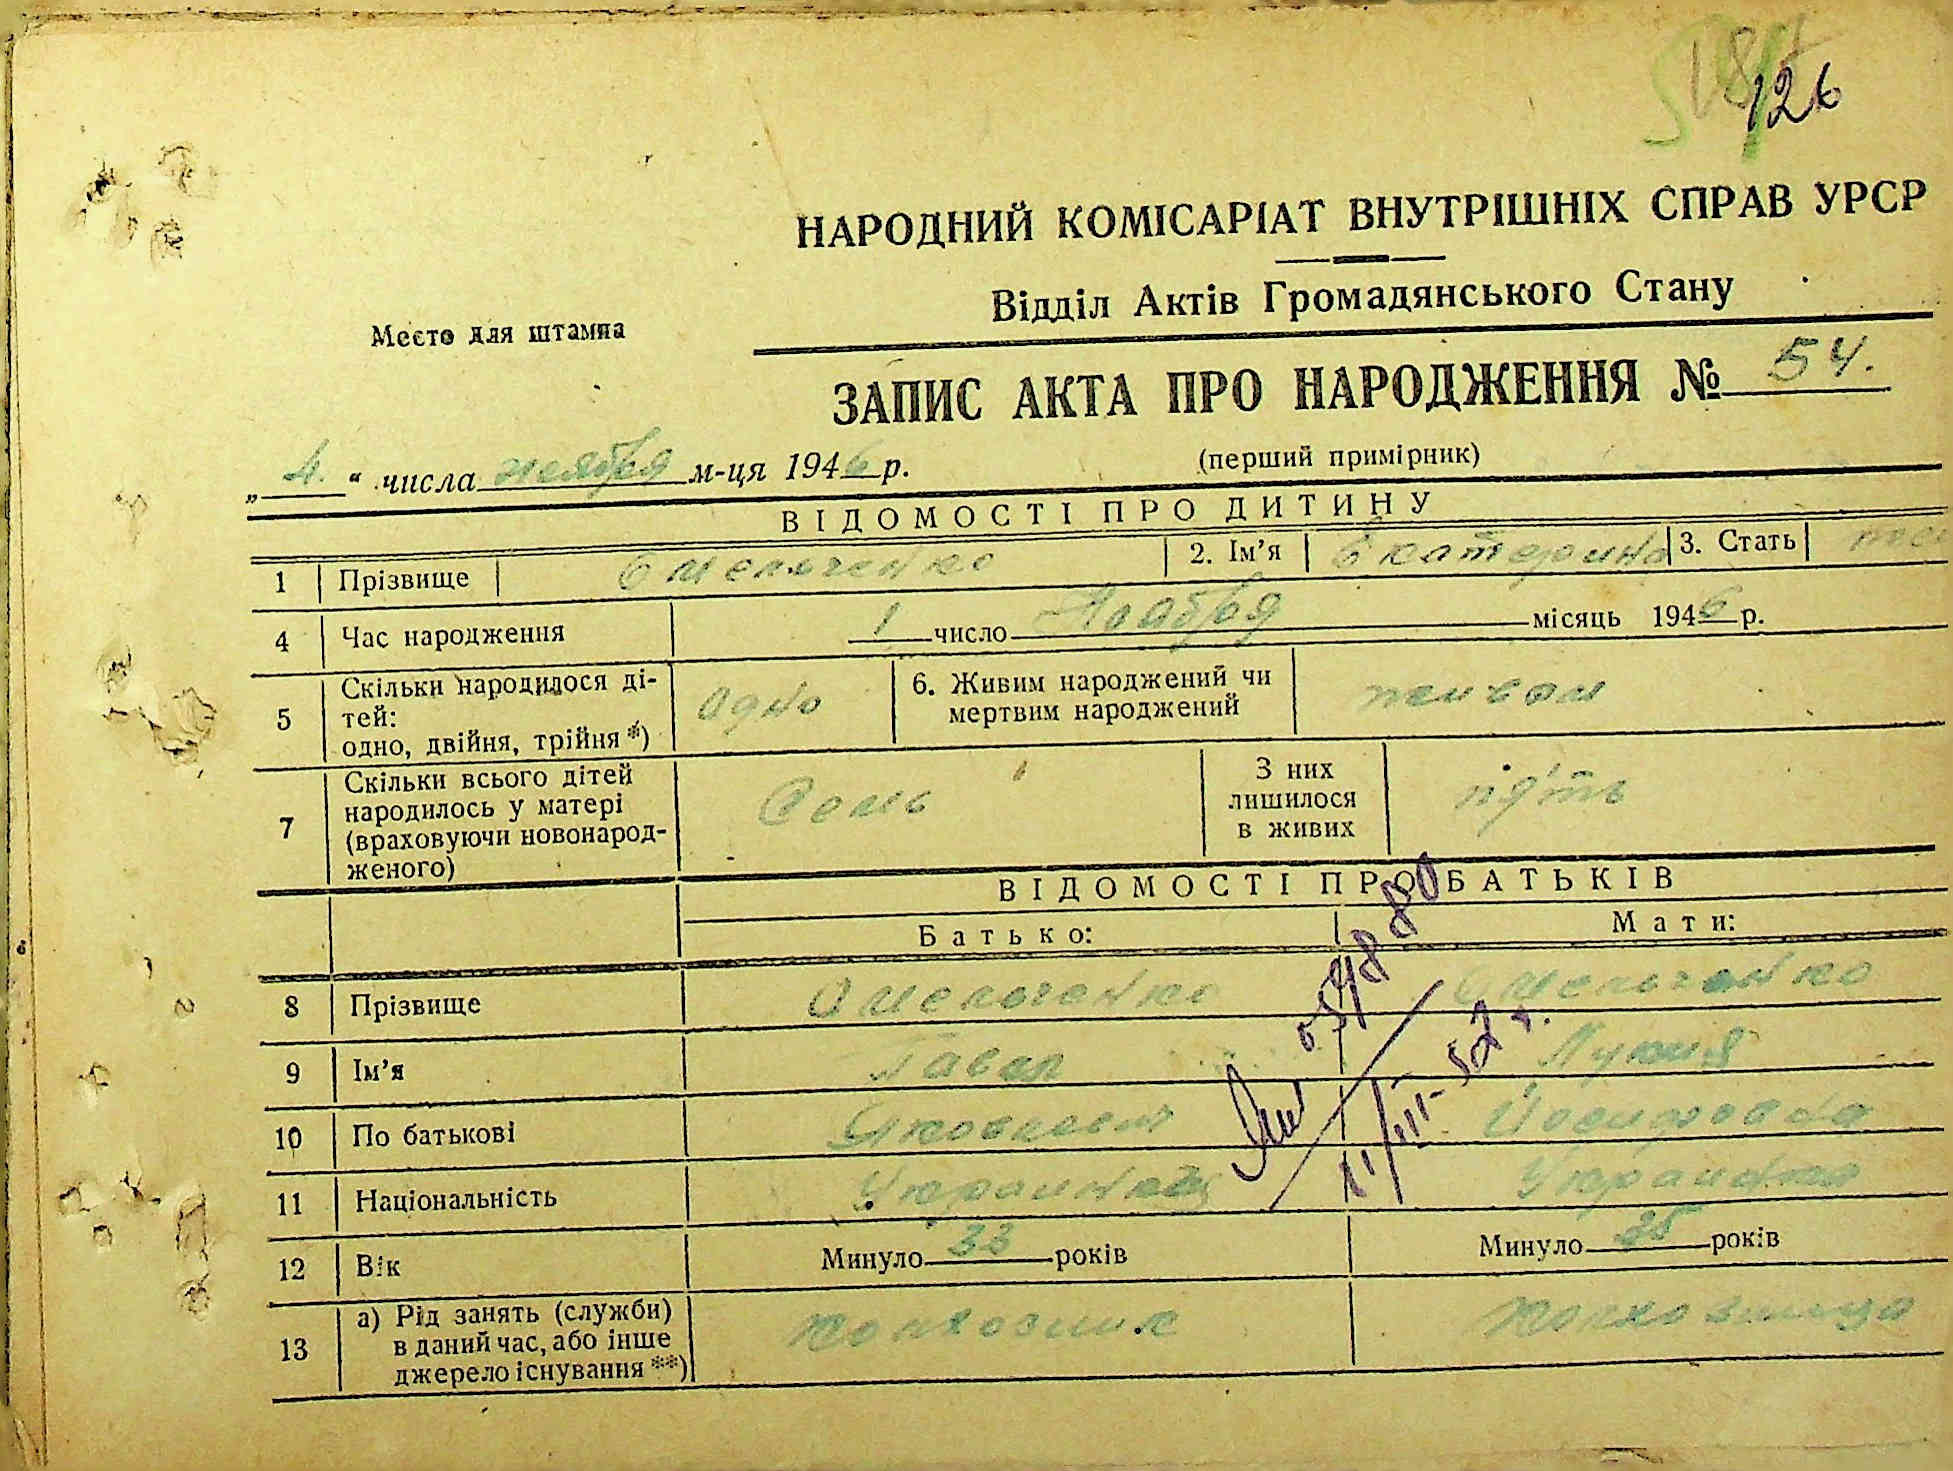 126
НАРОДНИЙ КОМІСАРІАТ ВНУТРІШНІХ СПРАВ УРСР
Відділ Актів Громадянського Стану
Место для штампа
ЗАПИС АКТА ПРО НАРОДЖЕННЯ № 54.
„ 4. “ числа ноября м-ця 1946 р. (перший примірник)
ВІДОМОСТІ ПРО ДИТИНУ
1 Прізвище Омельченко 2. Ім’я Екатерина 3. Стать
4 Час народження 1 число Ноября місяць 1946 р.
5 Скільки народилося ді-
тей:
одно, двійня, трійня *) Одно 6. Живим народжений чи
мертвим народжений живом
7 Скільки всього дітей
народилось у матері
(враховуючи новонарод-
женого) Семь З них
лишилося
в живих пять
ВІДОМОСТІ ПРО БАТЬКІВ
Батько: Мати:
8 Прізвище Омельченко Омельченко
9 Ім’я Павел Лукия
10 По батькові Яковлевич Йосиповна
11 Національність Украинец Украинка
12 Вік Минуло 33 років Минуло 35 років
13 а) Рід занять (служби)
в даний час, або інше
джерело існування **) Колхозник Колхозница
11/III-52 г.